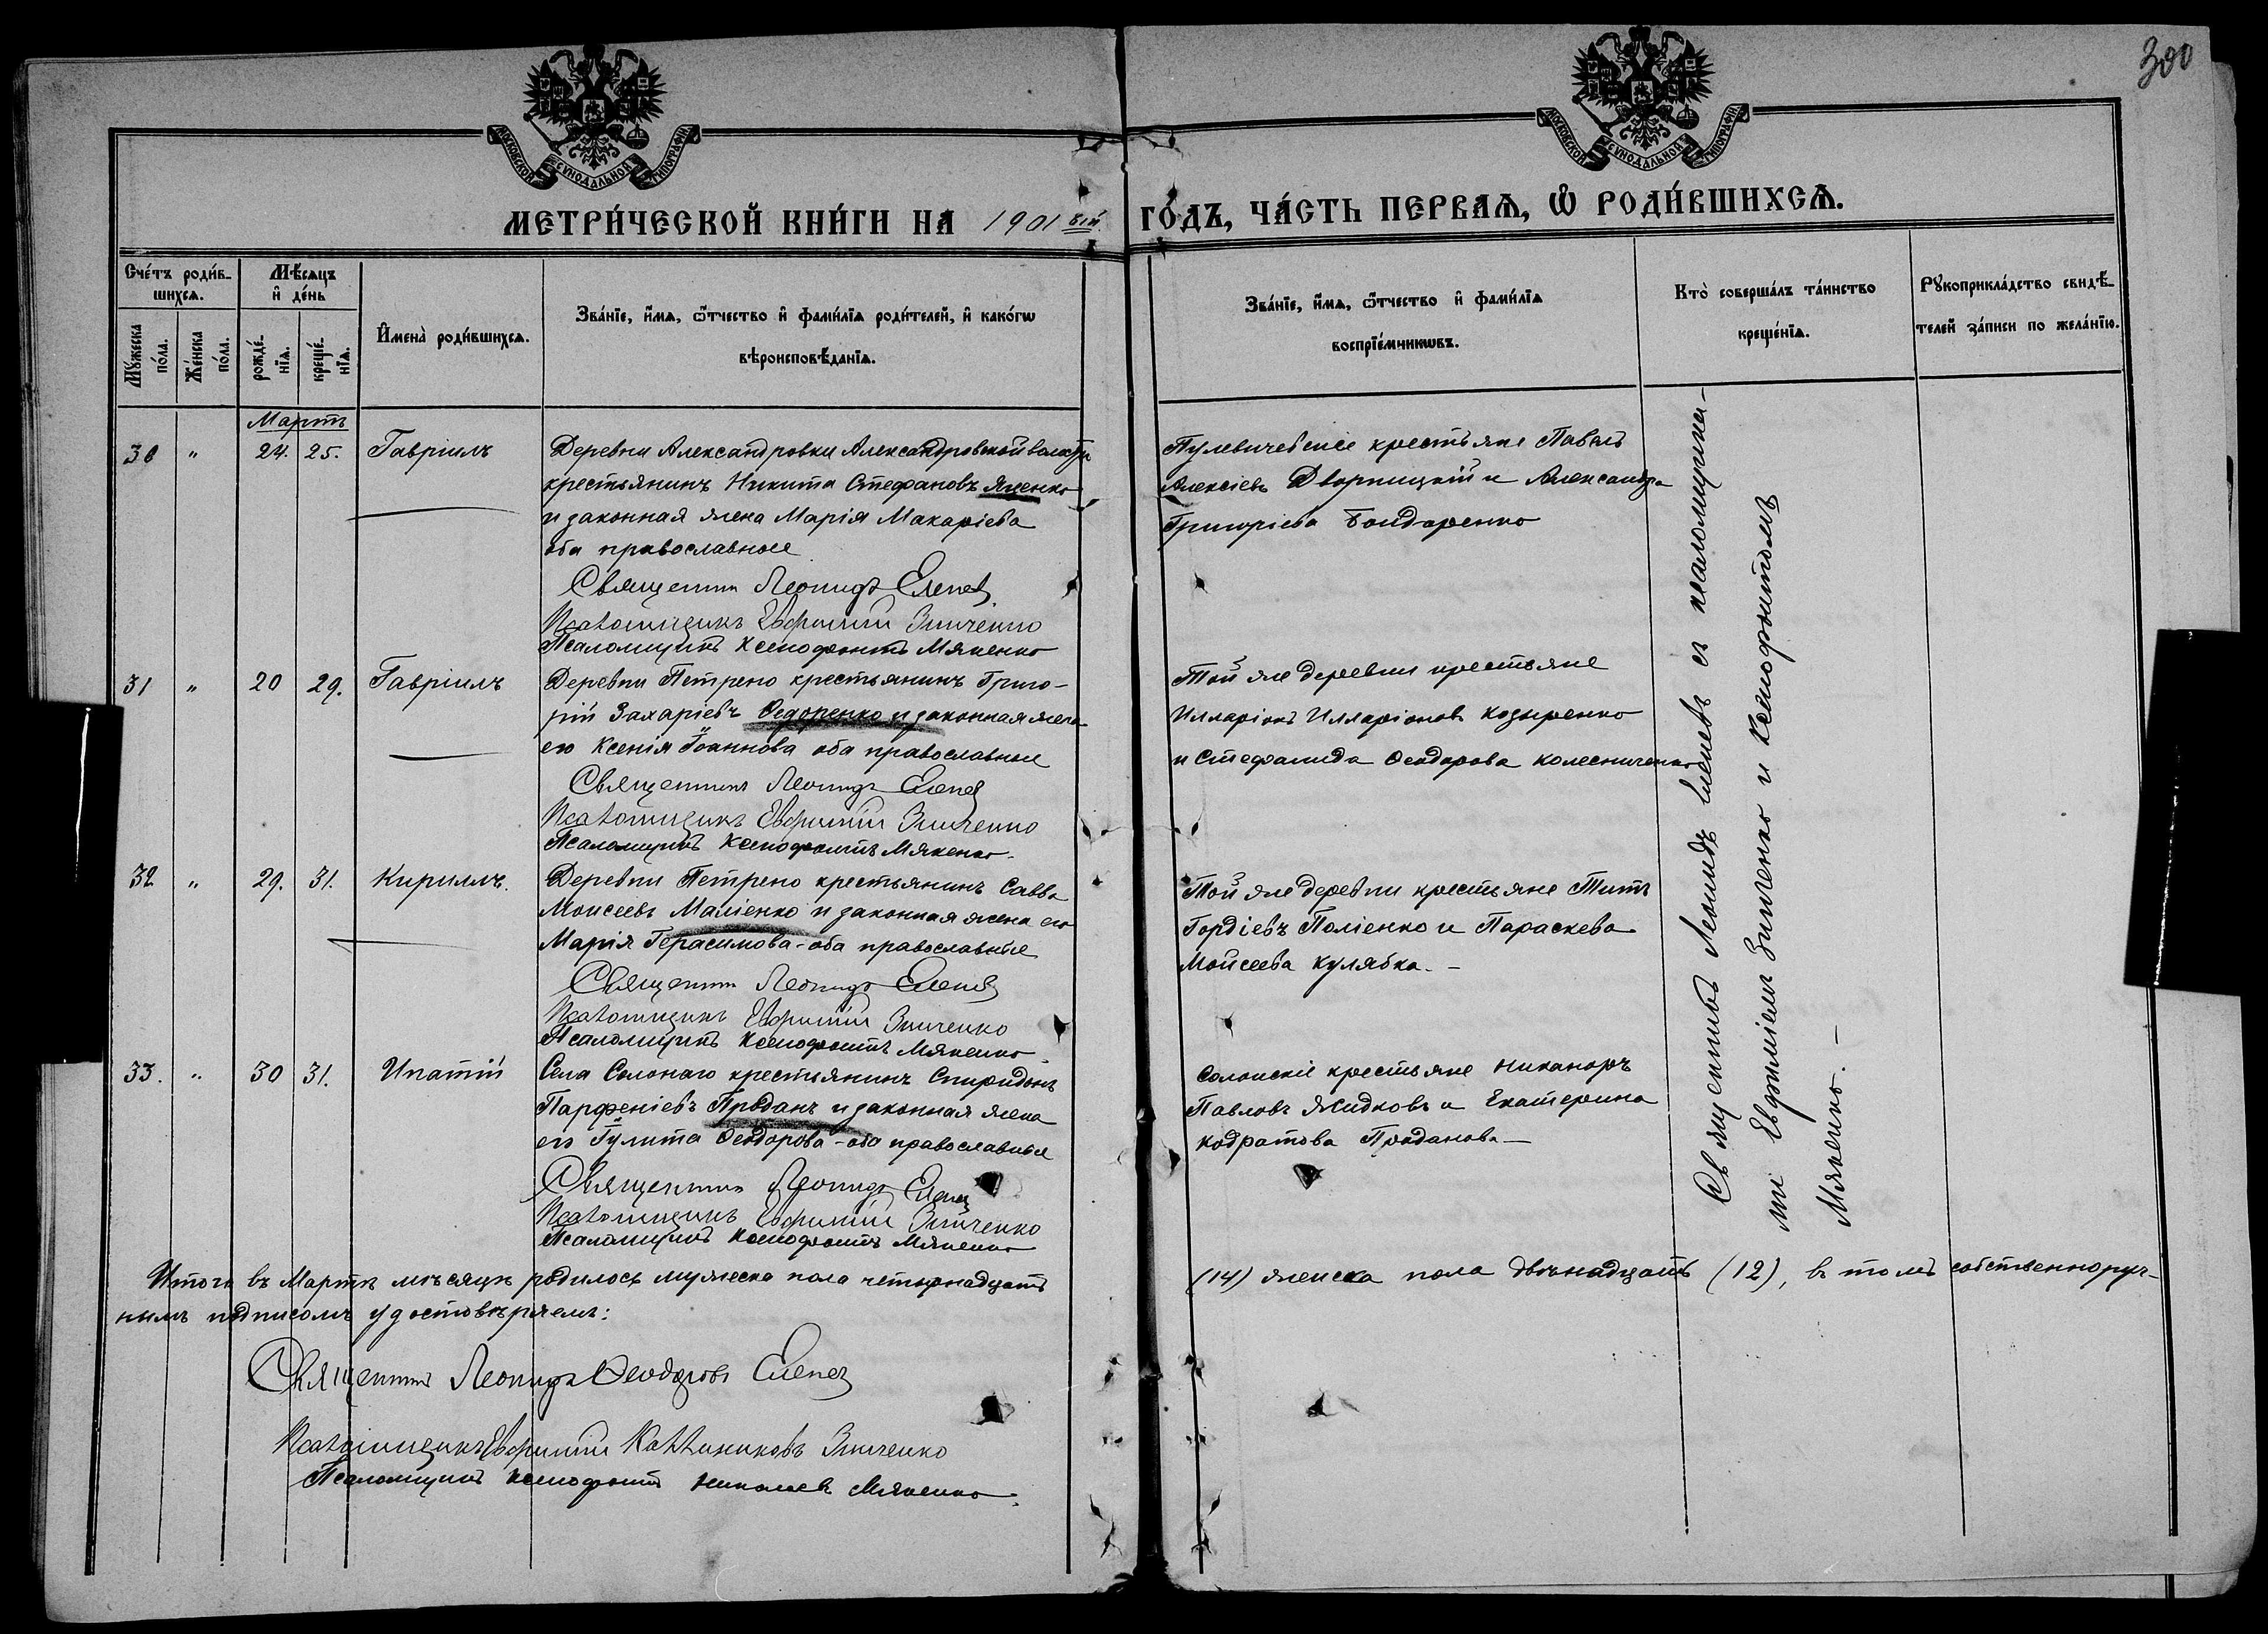 300
МОСКОВСКОЙ СѴНОДАЛЬНОЙ ТИПОГРАФІИ
МОСКОВСКОЙ СѴНОДАЛЬНОЙ ТИПОГРАФІИ
МЕТРИ́ЧЕСКОЙ КНИ́ГИ НА 1901 ый ГО́ДЪ, ЧА́СТЬ ПЕРВАѦ, Ѡ РОДИ́ВШИХСѦ.
Сче́тъ роди́в-
шихсѧ.
Мꙋжеска по́ла.
Же́нска по́ла.
Мѣ́сѧцъ
и҆ де́нь
рожде́-нїѧ.
креще́-нїѧ.
И҆мена̀ роди́вшихсѧ.
Зва́нїе, и҆́мѧ, ѻ҆́тчество и҆ фами́лїѧ роди́телей, и҆ како́гѡ
вѣроисповѣ́данїѧ.
Зва́нїе, и҆́мѧ, ѻ҆́тчество и҆ фами́лїѧ
воспрїе́мникѡвъ.
Кто̀ соверша́лъ та́инство
креще́нїѧ.
Рꙋкоприкла́дство свидѣ́-
телей за́писи по жела́нїю.
Мартъ
30 " 24. 25. Гавріилъ
Деревни Александровки Александровской волости
крестьянинъ Никита Стефановъ Яценко
и законная жена Марія Макаріева
оба православные
Священник Леонидъ Еленев
Псаломщикъ Евфимій Зинченко
Псаломщикъ Ксенофонтъ Мякенко
Пулевичевскіе крестьяне Павелъ
Алексіевъ Дворницкій и Александра
Григоріева Бондаренко
31 " 20 29. Гавріилъ
Деревни Петрено крестьянинъ Григо-
рій Захаріевъ Ѳедоренко и законная жена
его Ксенія Іоаннова оба православные
Священникъ Леонидъ Еленев
Псаломщикъ Евфимій Зинченко
Псаломщикъ Ксенофонтъ Мякенко.
Той же деревни крестьяне
Илларіонъ Илларіоновъ Козыренко
и Стефанида Ѳеодорова Колесниченко
32 " 29. 31. Кириллъ.
Деревни Петрено крестьянинъ Савва
Моисеевъ Маліенко и законная жена его
Марія Герасимова - оба православные
Священник Леонидъ Еленев
Псаломщикъ Евфимій Зинченко
Псаломщикъ Ксенофонтъ Мякенко.
Той же деревни крестьяне Титъ
Гордіевъ Поліенко и Параскева
Мойсеева Кулябка. -
33. " 30 31. Ипатій
Села Солонаго крестьянинъ Спиридонъ
Парфеніевъ Проданъ и законная жена
его Іулита Ѳеодорова - оба православные
Священник Леонидъ Еленев
Псаломщикъ Евфимій Зинченко
Псаломщикъ Ксенофонтъ Мякенко
Солонскіе крестьяне Никаноръ
Павловъ Жидковъ и Екатерина
Кодратова Проданова -
Священникъ Леонидъ Еленевъ съ псаломщика-
ми Евфиміемъ Зинченко и Ксенофонтомъ
Мякенко. -
Итого въ Мартѣ мѣсяцѣ родилось мужеска пола четырнадцать (14) женска пола двѣнадцать (12), въ томъ собственноруч-
нымъ подписомъ удостовѣряемъ:
Священникъ Леонидъ Ѳеодоровъ Еленев
Псаломщикъ Евфимій Каллиниковъ Зинченко
Псаломщикъ Ксенофонтъ Николаевъ Мякенко.